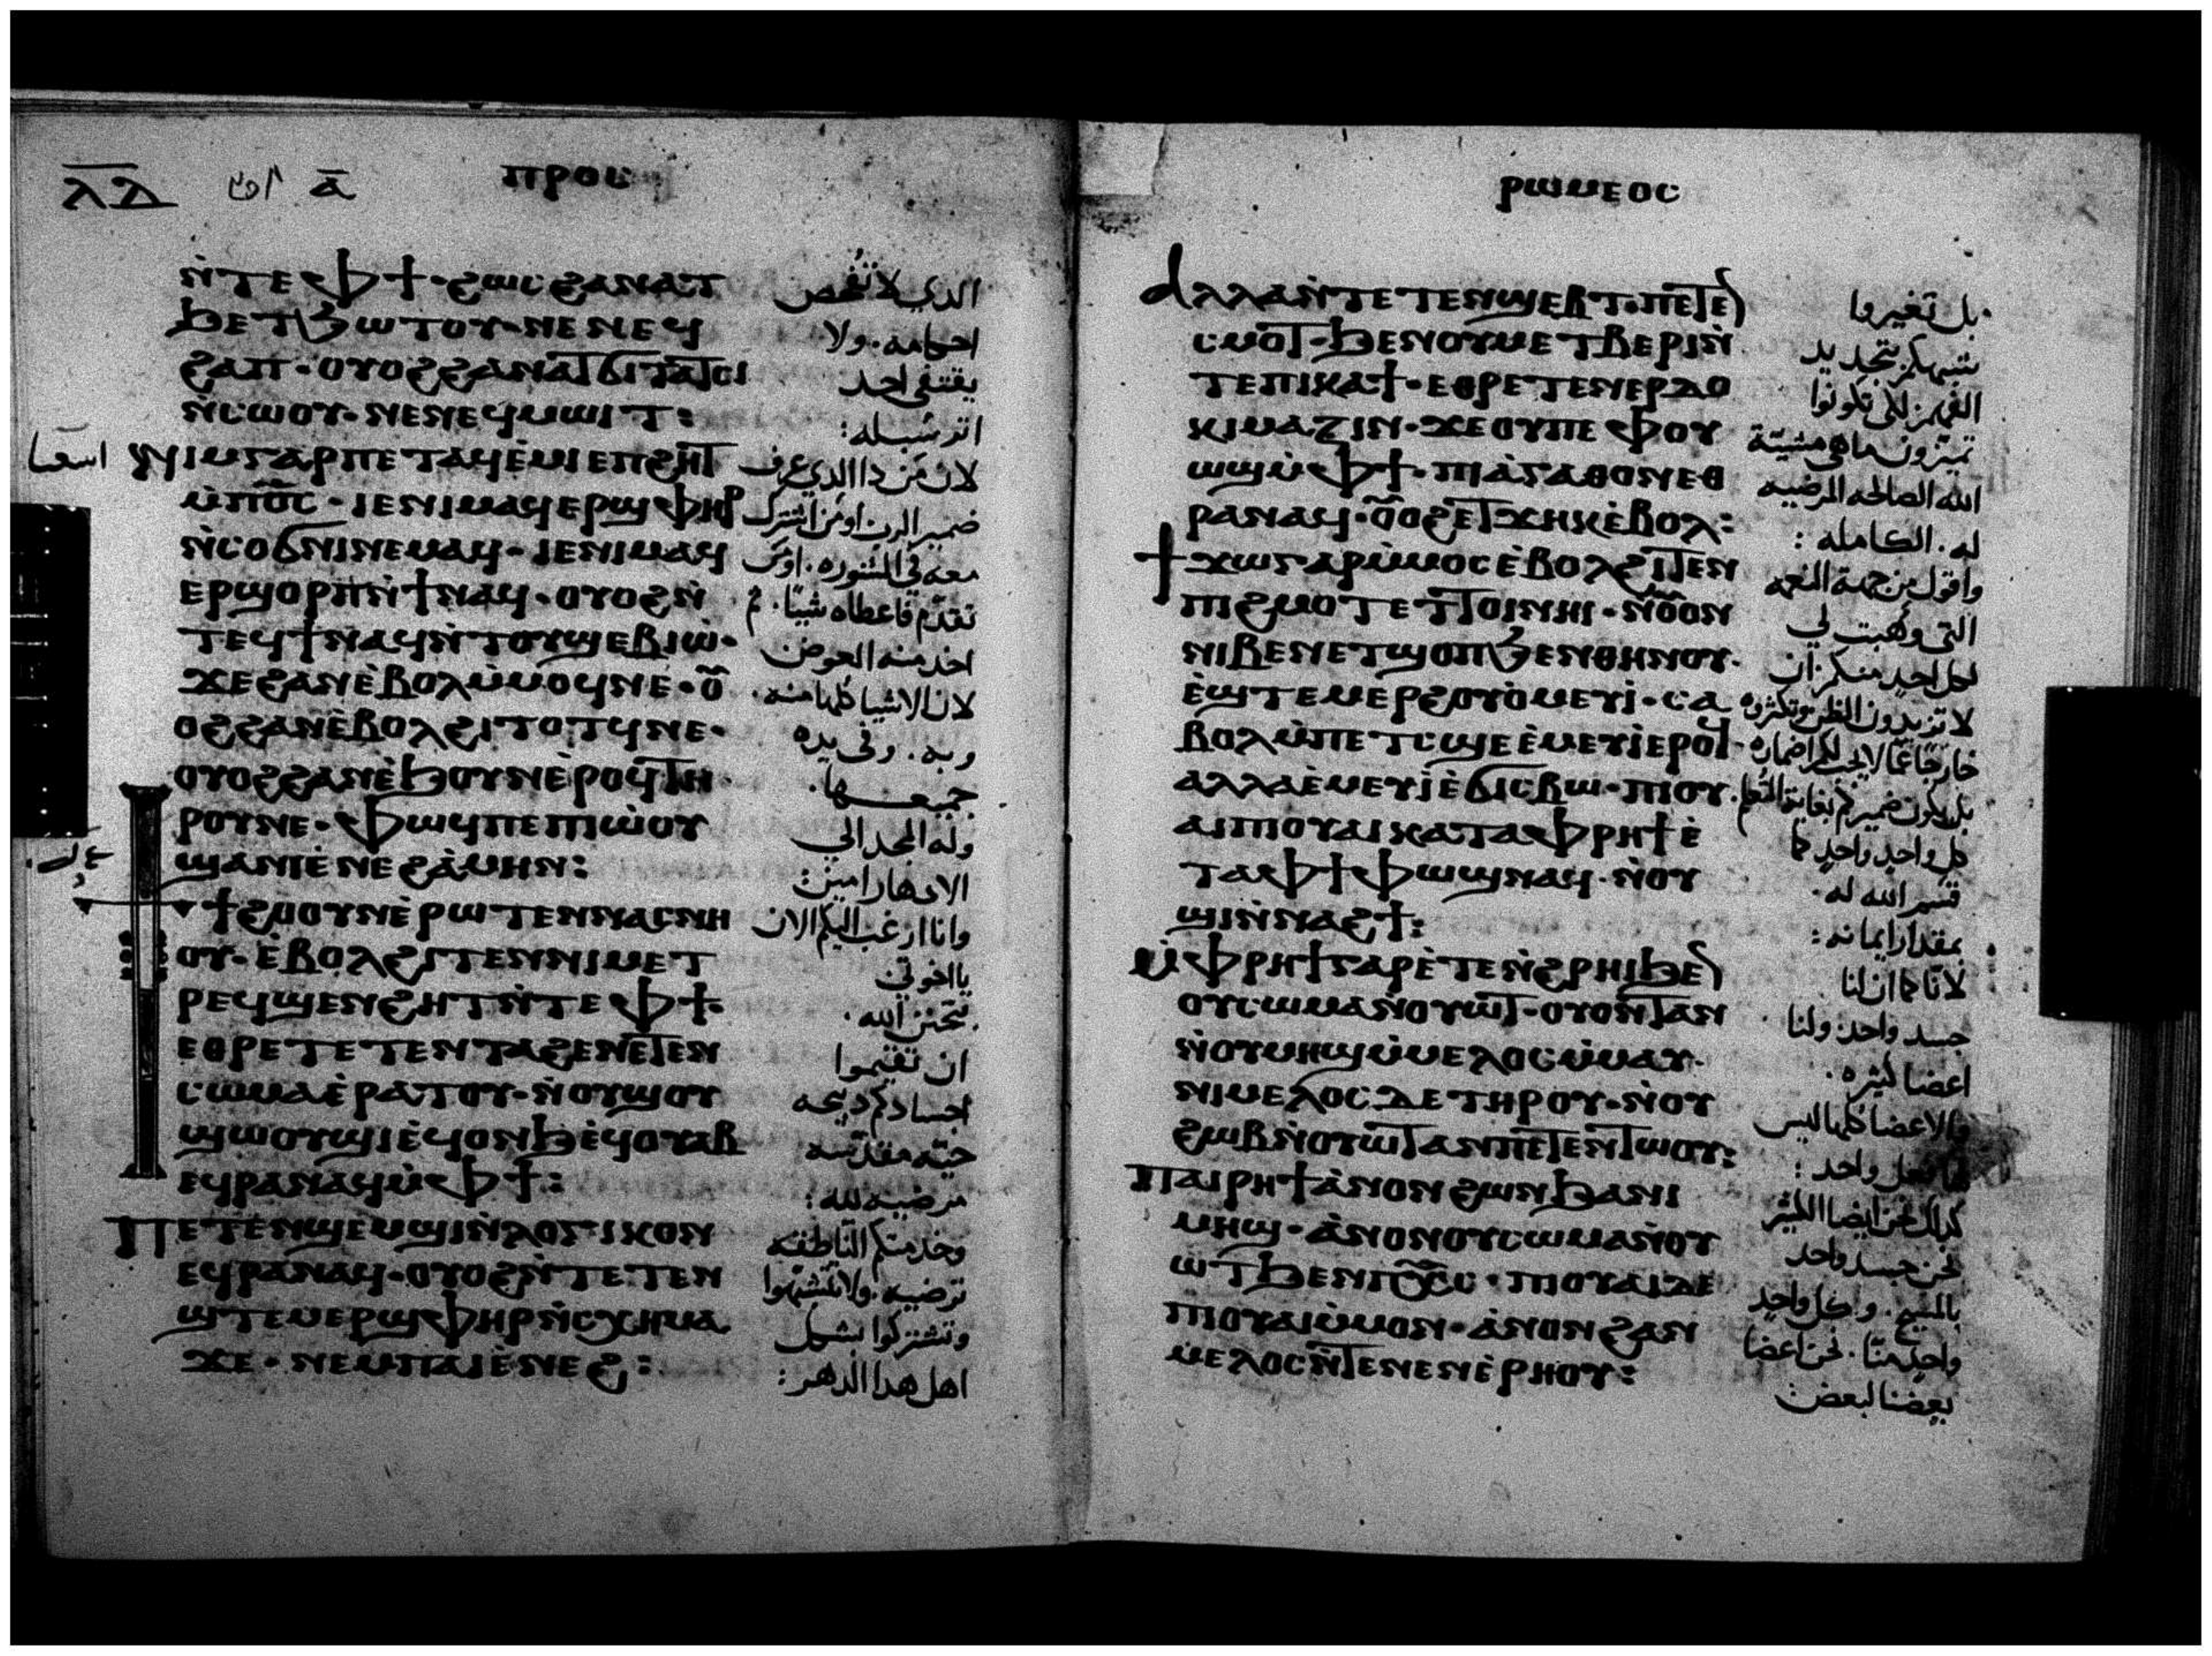 ⲗⲇ
ⲁ̄
ⲡⲣⲟⲥ
ⲛ̀ⲧⲉⲫϯ·ϩⲱⲥϩⲁⲛⲁⲧ
ϧⲉⲧϧⲱⲧⲟⲩ·ⲛⲉⲛⲉϥ
ϩⲁⲡ·ⲟⲩⲟϩϩⲁⲛⲁⲧϭⲓⲧⲁⲧⲥⲓ
ⲛ̀ⲥⲱⲟⲩ·ⲛⲉⲛⲉϥⲙⲱⲓⲧ:
ⲛⲓⲙⲅⲁⲣⲡⲉⲧⲁϥⲉ̀ⲙⲓⲉⲡϩⲏⲧ
ⲙ̀ⲡⲟ̅ⲥ̅·ⲓⲉⲛⲓⲙⲁϥⲉⲣϣⲫⲏⲣ
ⲛ̀ⲥⲟϭⲛⲓⲛⲉⲙⲁϥ·ⲓⲉⲛⲓⲙⲁϥ
ⲉⲣϣⲟⲣⲡⲛ̀ϯⲛⲁϥ·ⲟⲩⲟϩⲛ̀
ⲧⲉϥϯⲛⲁϥⲛ̀ⲧⲟⲩϣⲉⲃⲓⲱ̀·
ϫⲉϩⲁⲛⲉ̀ⲃⲟⲗⲙ̀ⲙⲟϥⲛⲉ·ⲟⲩ
ⲟϩϩⲁⲛⲉ̀ⲃⲟⲗϩⲓⲧⲟⲧϥⲛⲉ·
ⲟⲩⲟϩϩⲁⲛⲉ̀ϧⲟⲩⲛⲉ̀ⲣⲟϥⲧⲏ
ⲣⲟⲩⲛⲉ·ⲫⲱϥⲡⲉⲡⲓⲱ̀ⲟⲩ
ϣⲁⲛⲓⲉ̀ⲛⲉϩⲁ̀ⲙⲏⲛ:
ϯϩⲙⲟⲩⲛⲉ̀ⲣⲱⲧⲉⲛⲛⲁⲥⲛⲏ
ⲟⲩ·ⲉ̀ⲃⲟⲗϩⲓⲧⲉⲛⲛⲓⲙⲉⲧ
ⲣⲉϥϣⲉⲛϩⲏⲧⲛ̀ⲧⲉⲫϯ·
ⲉⲑⲣⲉⲧⲉⲧⲉⲛⲧⲁϩⲉⲛⲉⲧⲉⲛ
ⲥⲱⲙⲁⲉ̀ⲣⲁⲧⲟⲩ·ⲛ̀ⲟⲩϣⲟⲩ
ϣⲱⲟⲩϣⲓⲉ̀ϥⲟⲛϧⲉ̀ϥⲟⲩⲁⲃ
ⲉϥⲣⲁⲛⲁϥⲙ̀ⲫϯ:
ⲡⲉⲧⲉⲛϣⲉⲙϣⲓⲛ̀ⲗⲟⲅⲓⲕⲟⲛ
ⲉϥⲣⲁⲛⲁϥ·ⲟⲩⲟϩⲛ̀ⲧⲉⲧⲉⲛ
ϣⲧⲉⲙⲉⲣϣⲫⲏⲣⲛ̀ⲥⲭⲏⲙⲁ
ϫⲉ·ⲛⲉⲙⲡⲁⲓⲉ̀ⲛⲉϩ:
الذي لا تفحص
احكامه. ولا
يقتفي احد
اثر سبله:
لان من ذا الذي عرف
ضمير الرب او من اشترك
معه في المشوره. او من
تقدم فاعطاه شيئا. ثم
اخد منه العوض
لان الاشيا كلها منه.
وبه. وفي يده
جميعها.
وله المجد الي
الادهار امين:
وانا ارغب اليكم الان
يا اخوتي
بتحنن الله.
ان تقيموا
اجسادكم دبيحه
حيه مقدسه
مرضيه لله:
وخدمتكم الناطقه
ترضيه. ولا تتشبهوا
وتشتركوا بشكل
اهل هدا الدهر:
ⲣⲱⲙⲉⲟⲥ
ⲁⲗⲗⲁⲛ̀ⲧⲉⲧⲉⲛϣⲉⲃⲧ·ⲡⲉⲧⲉⲛ
ⲥⲙⲟⲧ·ϧⲉⲛⲟⲩⲙⲉⲧⲃⲉⲣⲓⲛ̀
ⲧⲉⲡⲓⲕⲁϯ·ⲉⲑⲣⲉⲧⲉⲛⲉⲣⲇⲟ
ⲕⲓⲙⲁⲍⲓⲛ·ϫⲉⲟⲩⲡⲉⲫⲟⲩ
ⲱϣⲙ̀ⲫϯ·ⲡⲓⲁ̀ⲅⲁⲑⲟⲛⲉⲑ
ⲣⲁⲛⲁϥ·ⲟⲩⲟϩⲉⲧϫⲏⲕⲉ̀ⲃⲟⲗ:
ϯϫⲱⲅⲁⲣⲙ̀ⲙⲟⲥⲉ̀ⲃⲟⲗϩⲓⲧⲉⲛ
ⲡⲓϩⲙⲟⲧⲉⲧⲧⲟⲓⲛⲏⲓ·ⲛ̀ⲟⲩⲟⲛ
ⲛⲓⲃⲉⲛⲉⲧϣⲟⲡϧⲉⲛⲑⲏⲛⲟⲩ·
ⲉ̀ϣⲧⲉⲙⲉⲣϩⲟⲩⲟ̀ⲙⲉⲩⲓ̀·ⲥⲁ
ⲃⲟⲗⲙ̀ⲡⲉⲧⲥϣⲉⲉ̀ⲙⲉⲩⲓ̀ⲉⲣⲟϥ·
ⲁⲗⲗⲁⲉ̀ⲙⲉⲩⲓ̀ⲉ̀ϭⲓⲥⲃⲱ·ⲡⲓⲟⲩ
ⲁⲓⲡⲓⲟⲩⲁⲓⲕⲁⲧⲁⲫⲣⲏϯⲉ̀
ⲧⲁⲫϯⲫⲱϣⲛⲁϥ·ⲛ̀ⲟⲩ
ϣⲓⲛ̀ⲛⲁϩϯ:
ⲙ̀ⲫⲣⲏϯⲅⲁⲣⲉ̀ⲧⲉⲛ̀ϩⲣⲏⲓϧⲉⲛ
ⲟⲩⲥⲱⲙⲁⲛ̀ⲟⲩⲱⲧ·ⲟⲩⲟⲛⲧⲁⲛ
ⲛ̀ⲟⲩⲙⲏϣⲙ̀ⲙⲉⲗⲟⲥⲙ̀ⲙⲁⲩ·
ⲛⲓⲙⲉⲗⲟⲥⲇⲉⲧⲏⲣⲟⲩ·ⲛ̀ⲟⲩ
ϩⲱⲃⲛ̀ⲟⲩⲱⲧⲁⲛⲡⲉⲧⲉⲛⲧⲱⲟⲩ:
ⲡⲁⲓⲣⲏϯⲁ̀ⲛⲟⲛϩⲱⲛϧⲁⲛⲓ
ⲙⲏϣ·ⲁ̀ⲛⲟⲛⲟⲩⲥⲱⲙⲁⲛ̀ⲟⲩ
ⲱⲧϧⲉⲛⲡⲭ̅ⲥ̅·ⲡⲓⲟⲩⲁⲓⲇⲉ
ⲡⲓⲟⲩⲁⲓⲙ̀ⲙⲟⲛ·ⲁ̀ⲛⲟⲛϩⲁⲛ
ⲙⲉⲗⲟⲥⲛ̀ⲧⲉⲛⲉⲛⲉ̀ⲣⲏⲟⲩ:
بل تغيروا
شبهكم بتجديد
الفهم. لكي تكونوا
تميزون ما هي مشيئة
الله الصالحه المرضيه
له. الكامله:
واقول من جهة النعمه
التي وهبت لي
لكل احد منكم ان
لا تزيدون الظن وتكثروه
خارجا عما لا يجب لكم اضماره
بل يكون ضميركم بغاية التعلم.
كل واحد واحد كما
قسم الله له.
بمقدار ايمانه:
لانا كما ان لنا
جسد واحد. ولنا
اعضا كثيره.
والاعضا كلها ليس
فعل واحد:
كدلك نحن ايضا الكثير
نحن جسد واحد
بالمسيح. وكل واحد
واحد منا. نحن اعضا
بعضنا لبعض